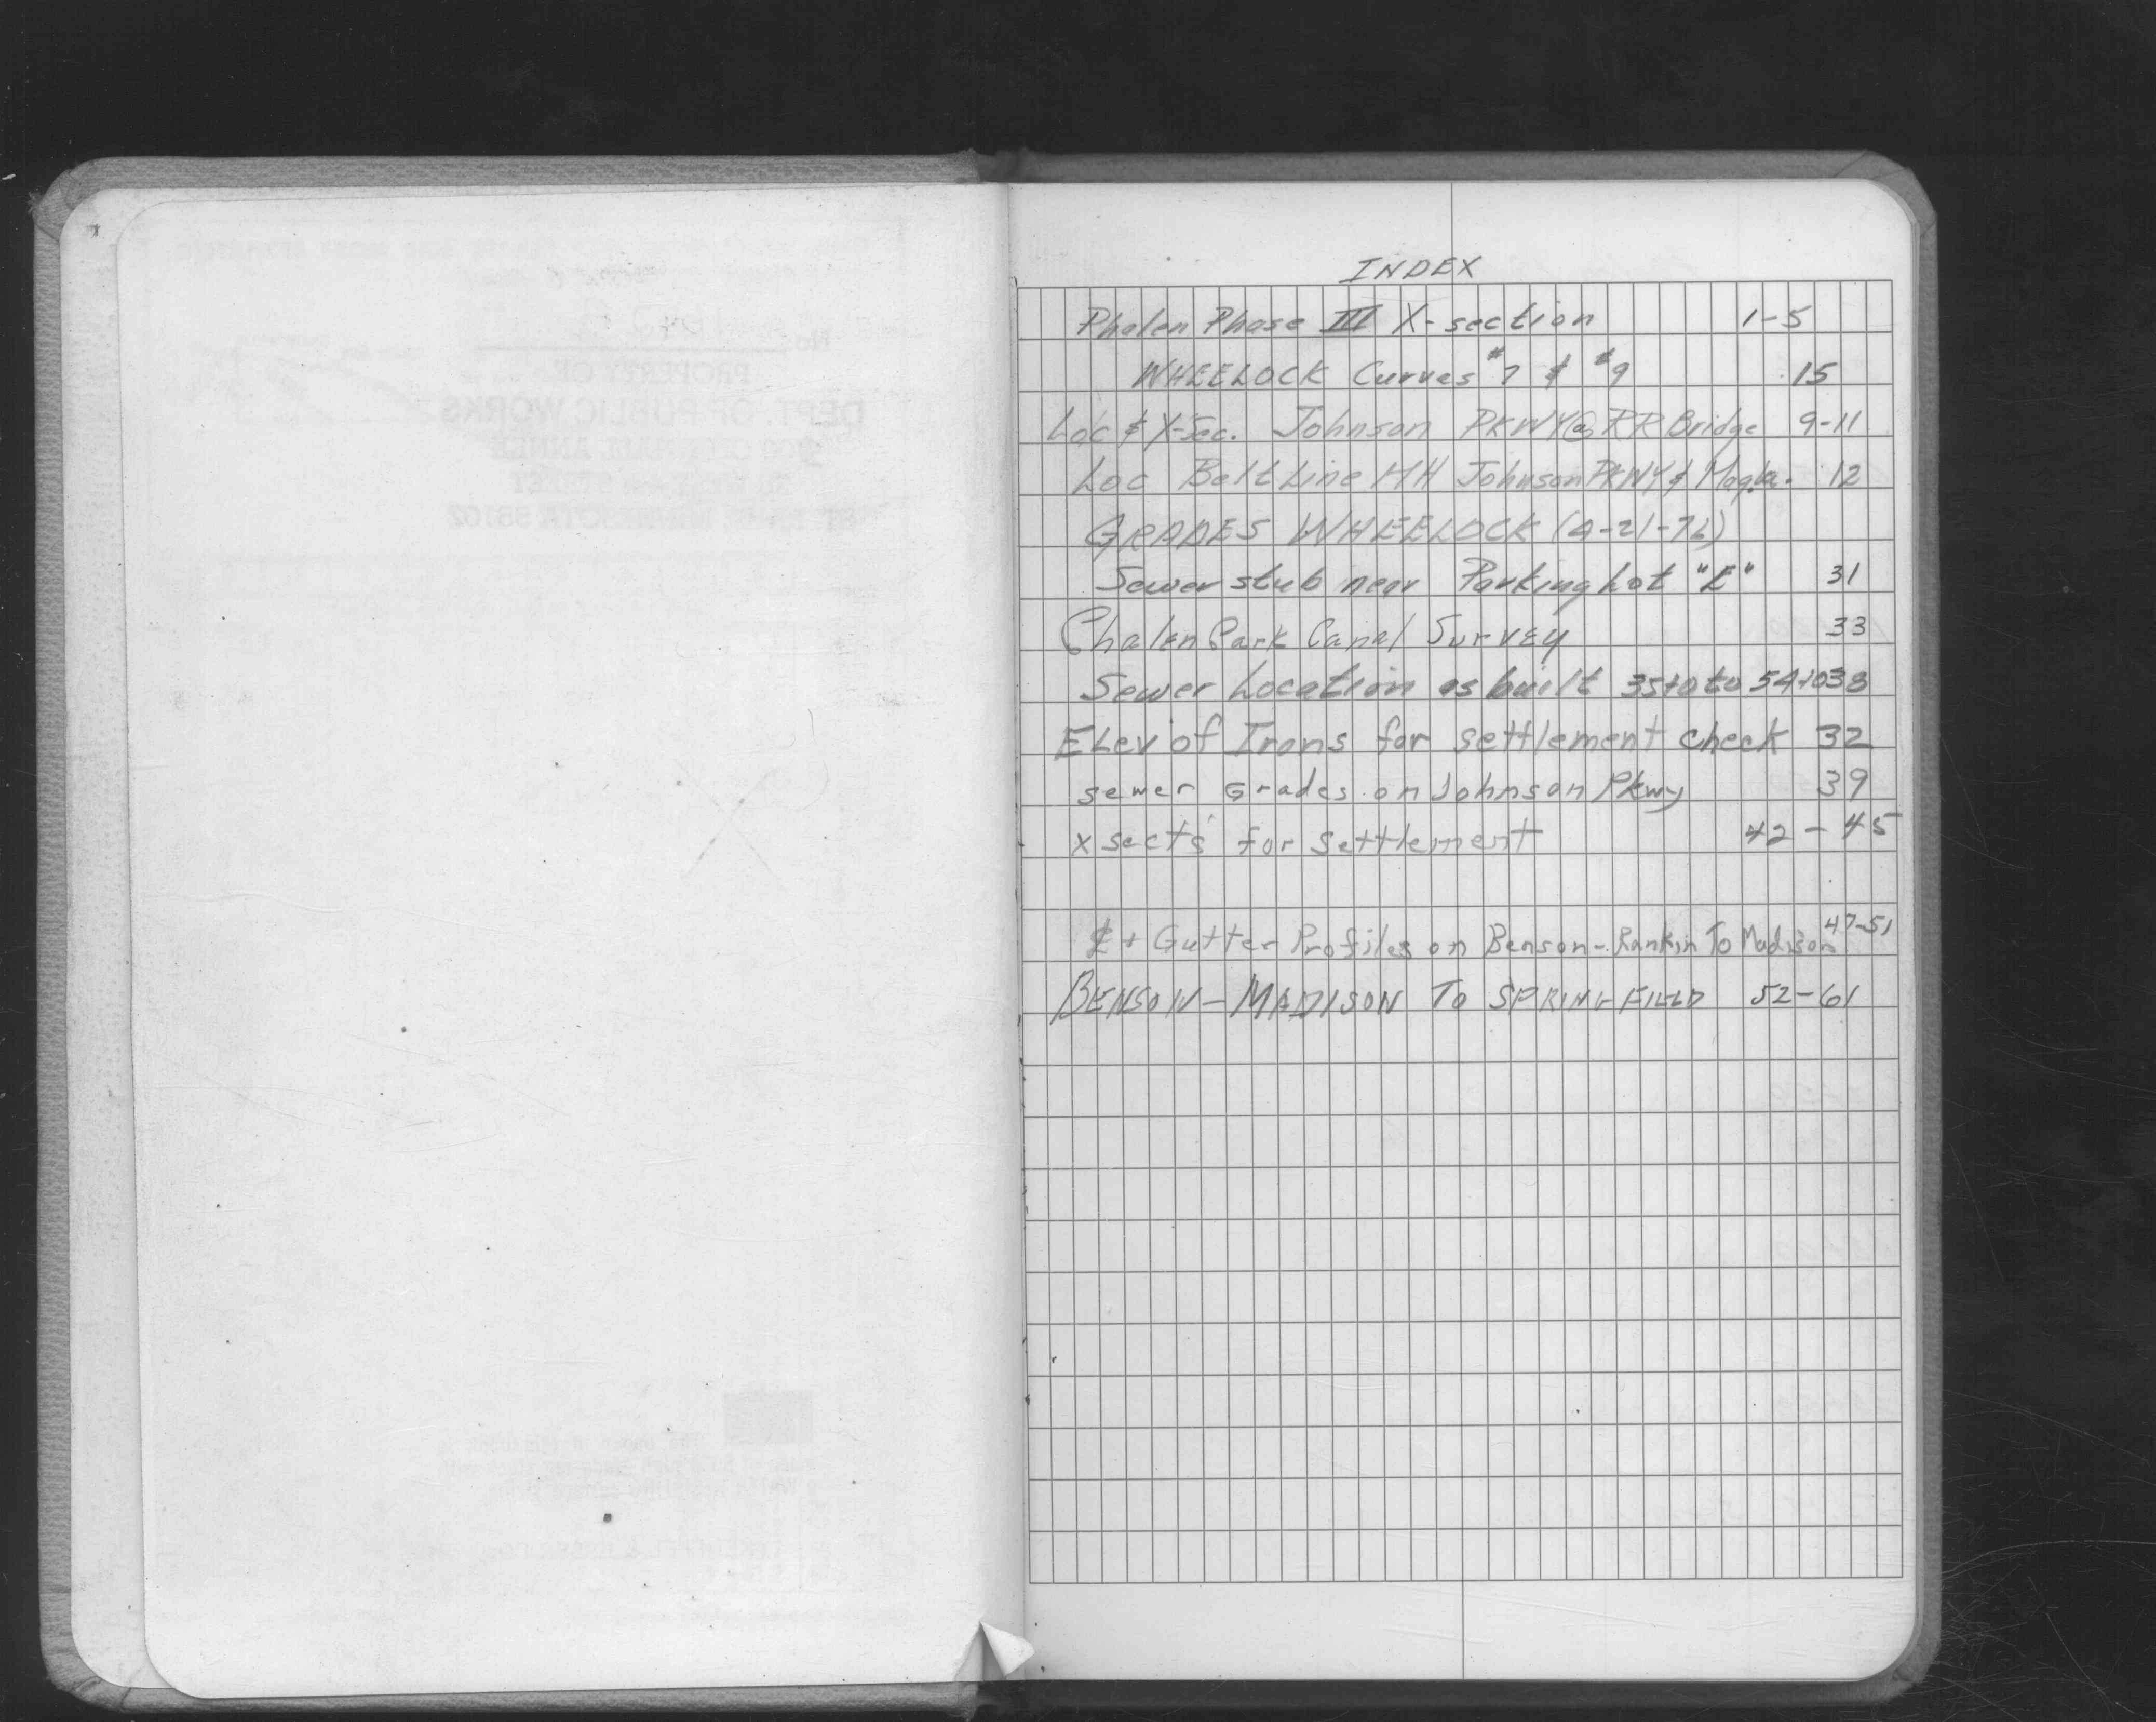 INDEX
Phalen Phase III X-section 1-5
WHEELOCK Curves #7 & #9 15
Loc & X-Sec. Johnson PKWY @ RR Bridge 9-11
Loc Belt Line MH Johnson PKWY & Mag'la. 12
GRADES WHEELOCK (4-21-76)
Sewer stub near Parking Lot "E" 31
Phalen Park Canal Survey 33
Sewer Location as built 35+0 to 54+0 38
Elev of Irons for settlement check 32
sewer Grades on Johnson Pkwy 39
x sects for settlement 42-45
℄ + Gutter Profiles on Benson - Rankin To Madison 47-51
BENSON - MADISON TO SPRINGFIELD 52-61
No.
PROPERTY OF
DEPT. OF PUBLIC WORKS